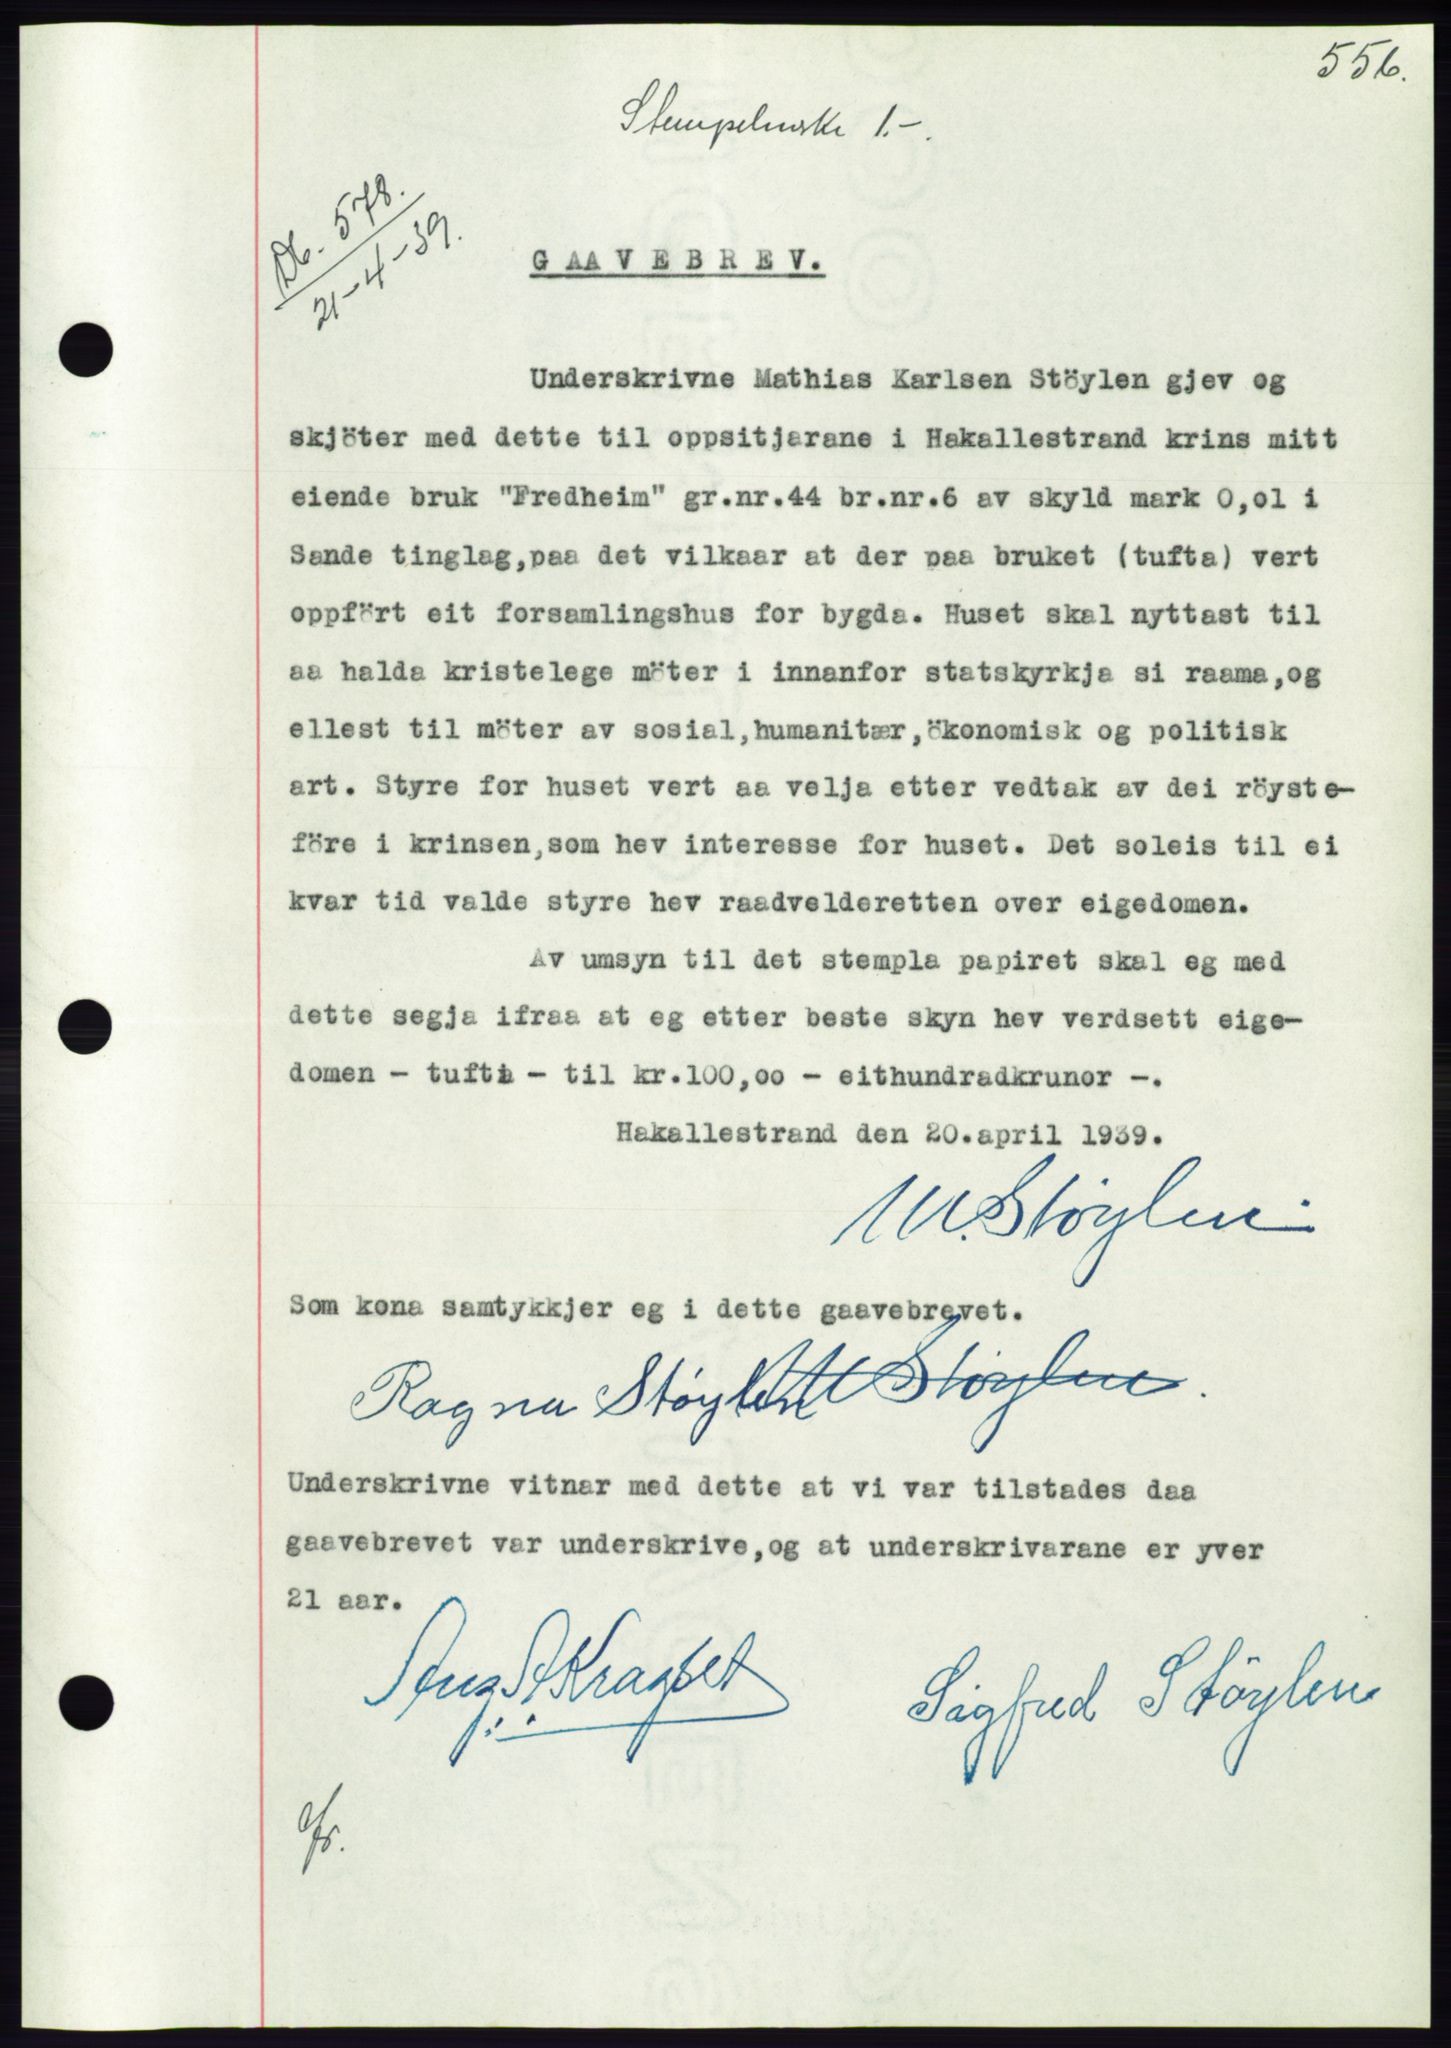 556.
Stempelmerke 1.-.
Db. 578.
21-4-39.
GAAVEBREV.
Underskrivne Mathias Karlsen Stöylen gjev og
skjöter med dette til oppsitjarane i Hakallestrand krins mitt
eiende bruk "Fredheim" gr.nr.44 br.nr.6 av skyld mark 0,01 i
Sande tinglag,paa det vilkaar at der paa bruket (tufta) vert
oppfört eit forsamlingshus for bygda. Huset skal nyttast til
aa halda kristelege möter i innanfor statskyrkja si raama,og
ellest til möter av sosial,humanitær,ökonomisk og politisk
art. Styre for huset vert aa velja etter vedtak av dei röyste-
före i krinsen,som hev interesse for huset. Det soleis til ei
kvar tid valde styre hev raadvelderetten over eigedomen.
Av umsyn til det stempla papiret skal eg med
dette segja ifraa at eg etter beste skyn hev verdsett eige-
domen - tufti - til kr.100,oo - eithundradkrunor -.
Hakallestrand den 20.april 1939.
M. Støylen.
Som kona samtykkjer eg i dette gaavebrevet.
Ragna Støylen M Støylen.
Underskrivne vitnar med dette at vi var tilstades daa
gaavebrevet var underskrive,og at underskrivarane er yver
21 aar.
Sigfred Støylen